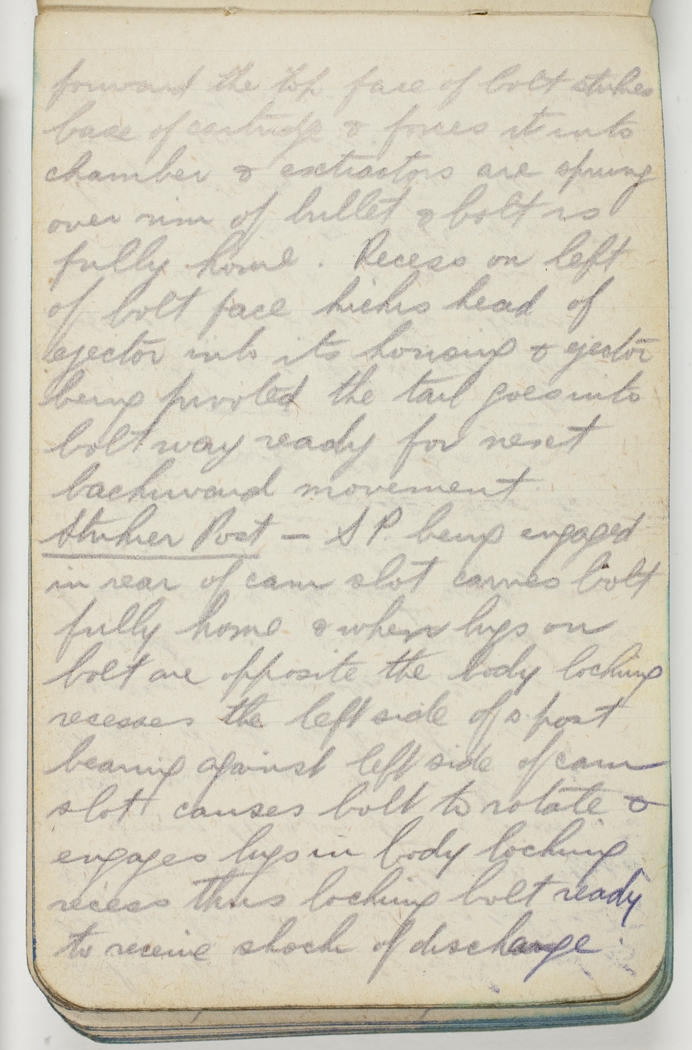 forward the top face of bolt strikes
base of cartridge & forces it into
chamber & extractors are sprung
over rim of bullet & bolt is
fully home. Recess on left
of bolt face kicks head of
ejector into its housing & ejector
being pivoted the tail goes into
bolt way ready for next
backward movement
Striker Post - S P. being engaged
in rear of cam slot carries bolt
fully home & when lugs on
bolt are opposite the body locking
recesses the left side of s. post
bearing against left side of cam
slot causes bolt to rotate &
engages lugs in body locking
recess thus locking bolt ready
to receive shock of discharge.